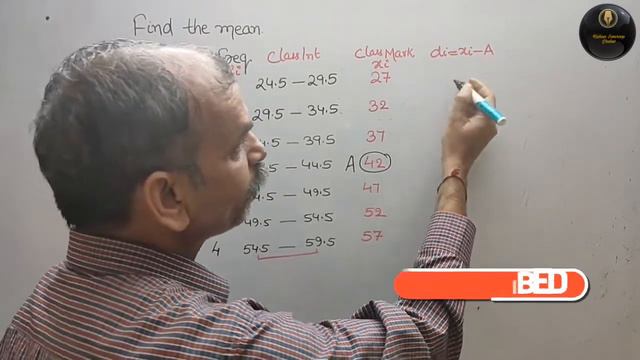 Find the mean.
Freq Class Int Class Mark di=xi-A
xi
24.5 — 29.5 27
29.5 — 34.5 32
— 39.5 37
— 44.5 A 42
— 49.5 47
49.5 — 54.5 52
4 54.5 — 59.5 57
BED